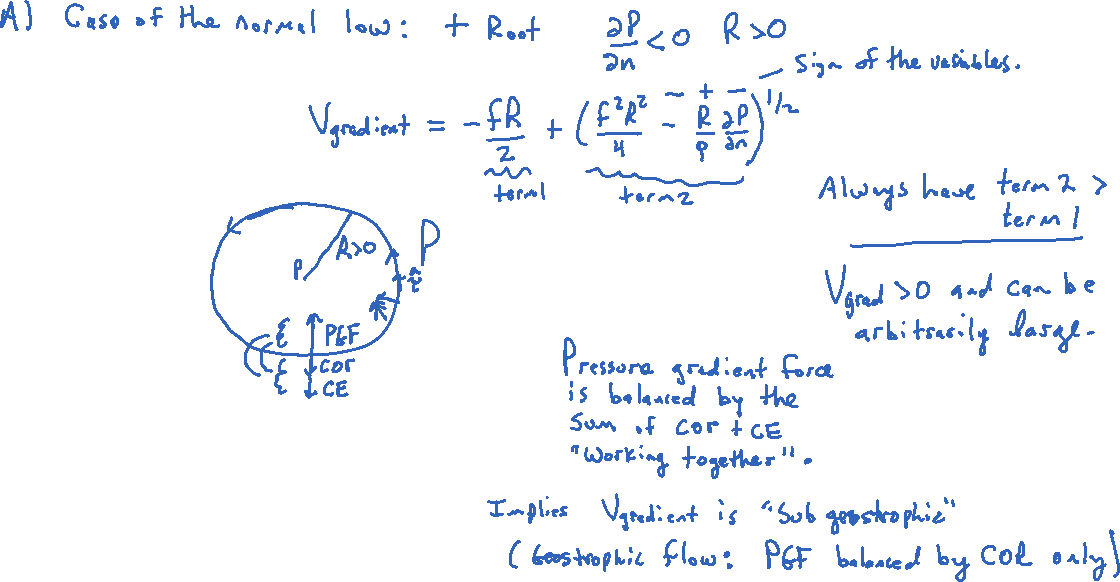 A) Case of the normal low: + Root ∂P/∂n < 0 R > 0
Sign of the variables.
V_gradient = - fR/2 + ( f²R²/4 - R/ρ ∂P/∂n )^1/2
- + -
term 1
term 2
Always have term 2 >
term 1
V_grad > 0 and can be
arbitrarily large.
R>0
P
P
PGF
COR
CE
Pressure gradient force
is balanced by the
sum of COR + CE
"Working together".
Implies V_gradient is "Sub geostrophic"
(Geostrophic flow: PGF balanced by COR only)